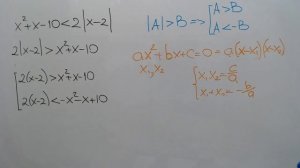 x²+x-10<2|x-2|
2|x-2|>x²+x-10
[2(x-2)>x²+x-10
2(x-2)<-x²-x+10
|A|>B => [A>B
A<-B
ax²+bx+c=0=a(x-x₁)(x-x₂)
x₁,x₂
{x₁x₂=c/a
x₁+x₂=-b/a